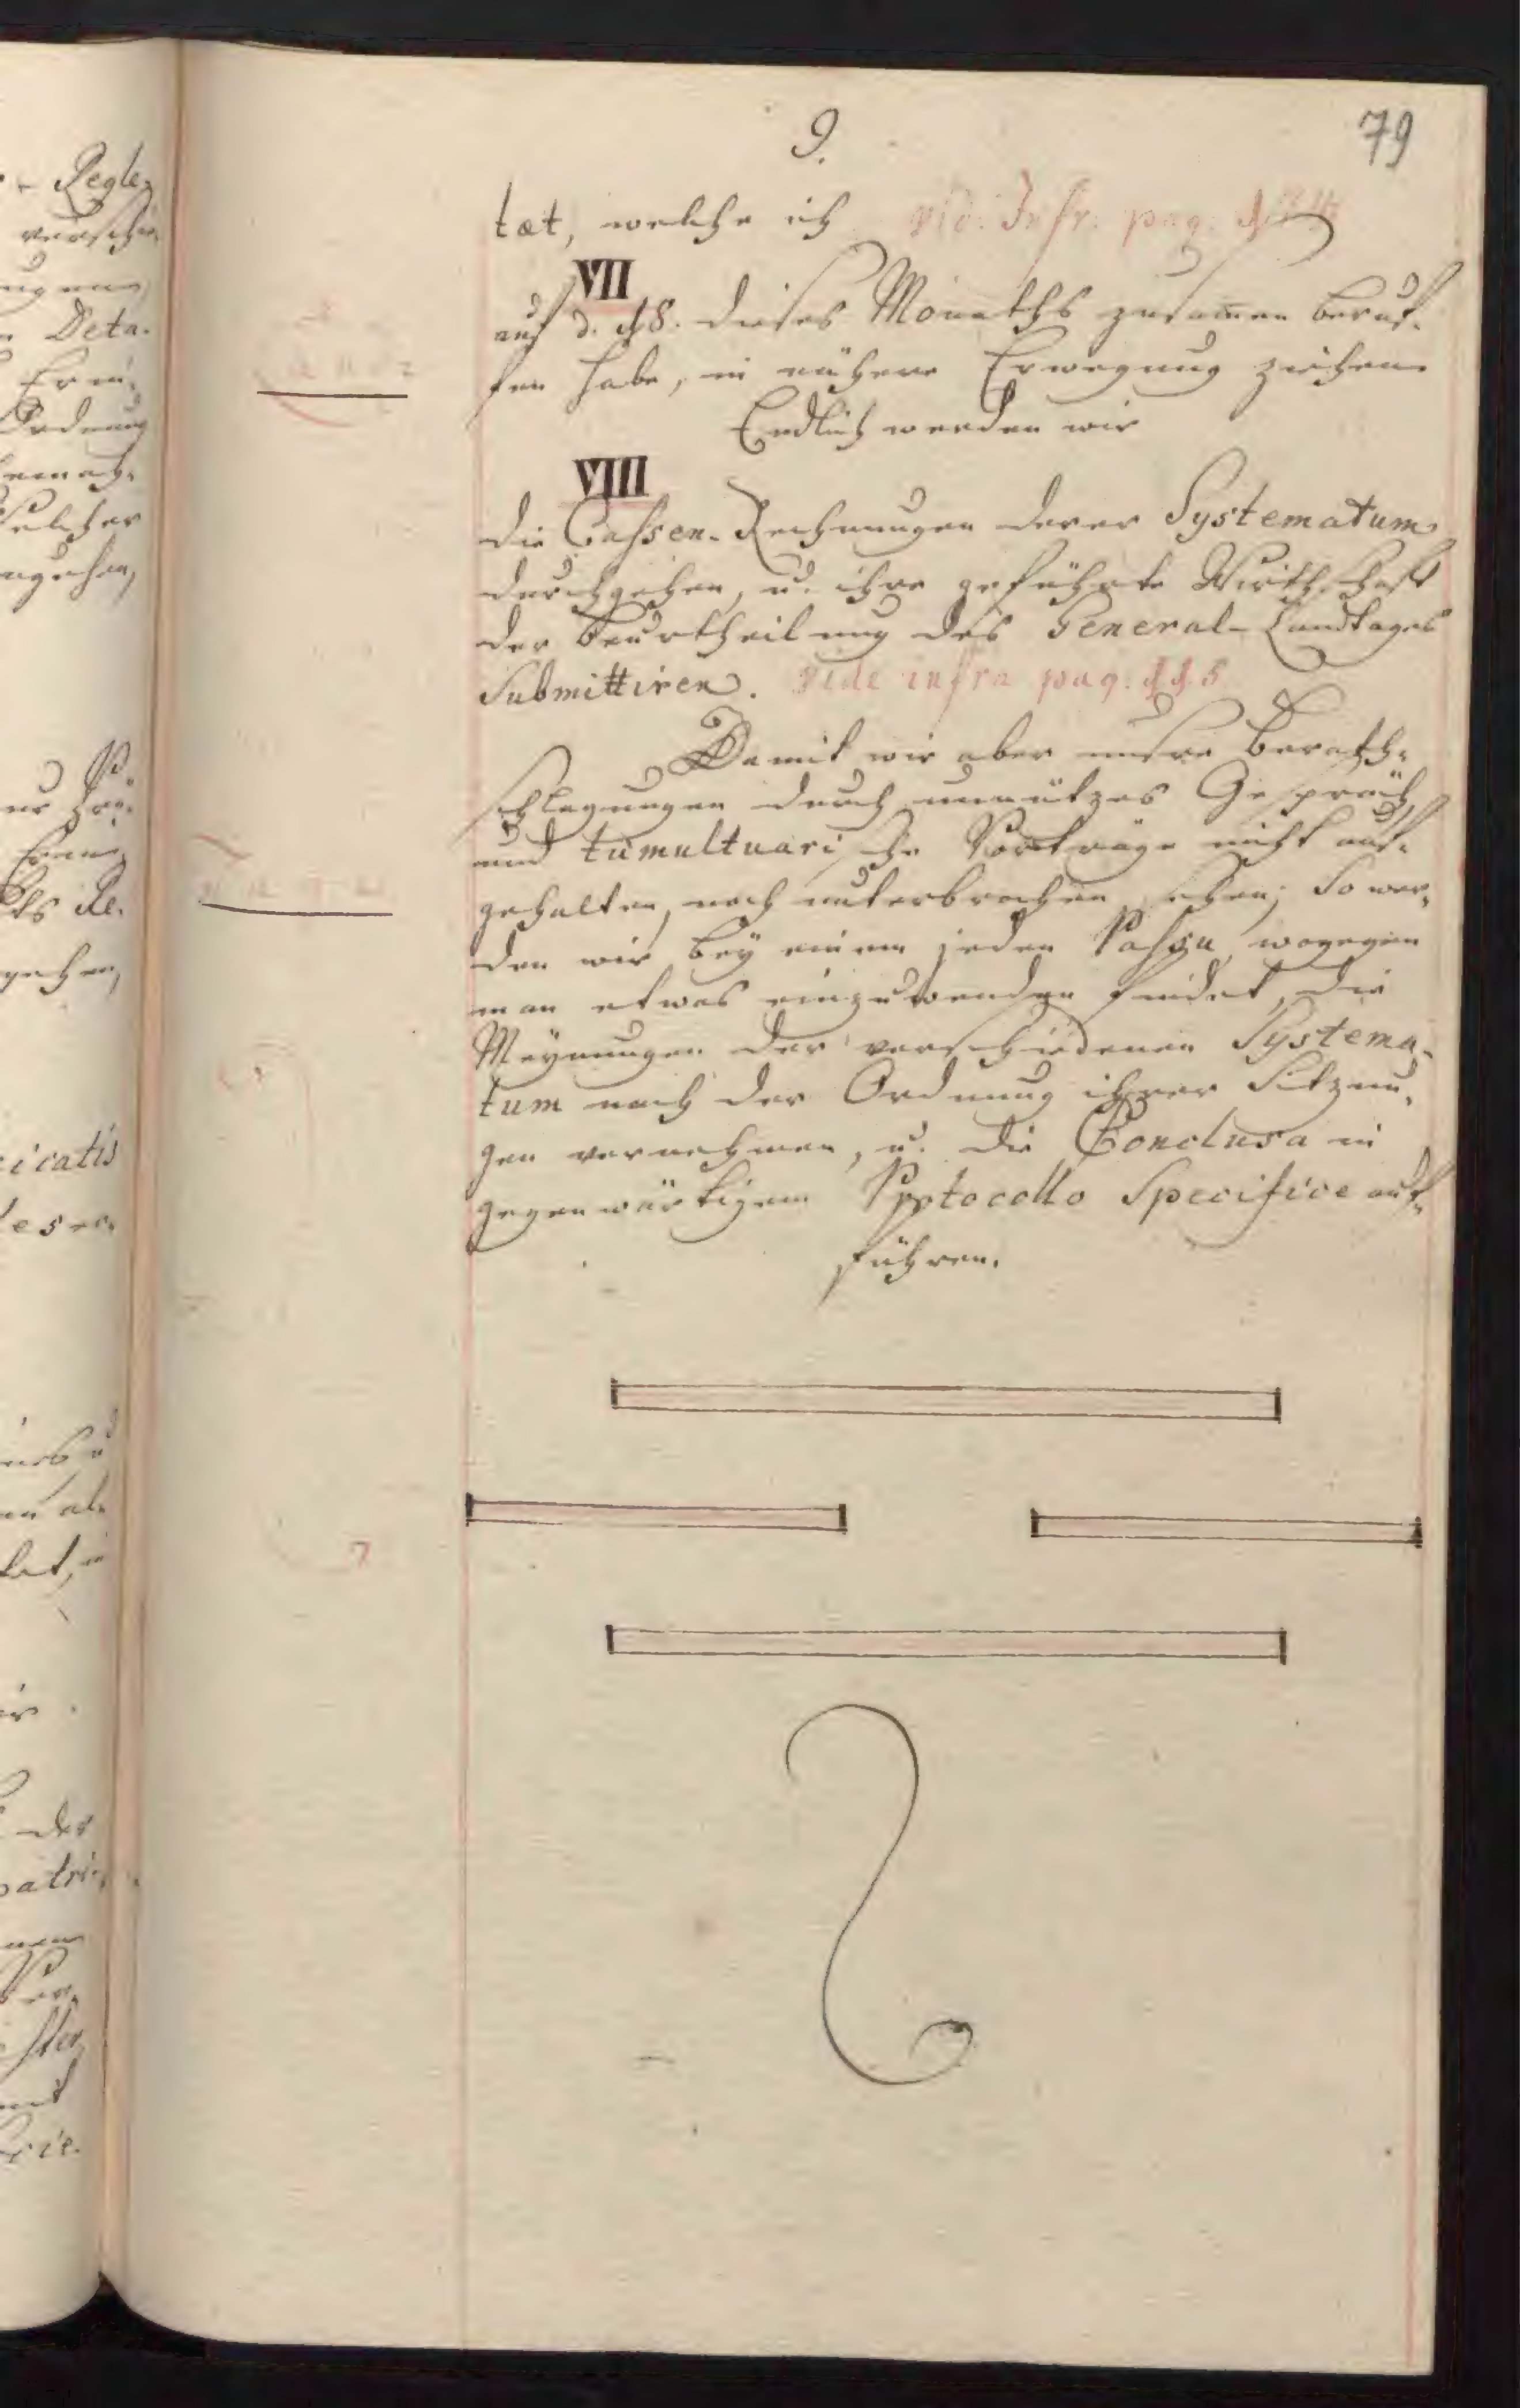 9.
79
tæt, welche ich vid. Infr. pag.
VII
auf d. 18. dieses Monaths zusam̄en beruf-
fen habe, in nähere Erwegung ziehen.
Endlich werden wir
VIII
die Cassen-Rechnungen derer Systematum
durchgehen, u. ihre geführte Wirthschaft
der Beurtheilung des General-Landtages
Submittiren. Vide infra pag. 115
Damit wir aber unsre Berath-
schlagungen durch unnützes Gespräch,
und tumultuarische Vorträge nicht auf-
gehalten, noch unterbrochen sehen; So wer-
den wir bey einem jeden Passu, wogegen
man etwas einzuwenden findet, die
Meynungen der verschiedenen Systema-
tum nach der Ordnung ihrer Sitzun-
gen vernehmen, u. die Conclusa in
gegenwärtigem Protocollo Specifice auf-
führen.